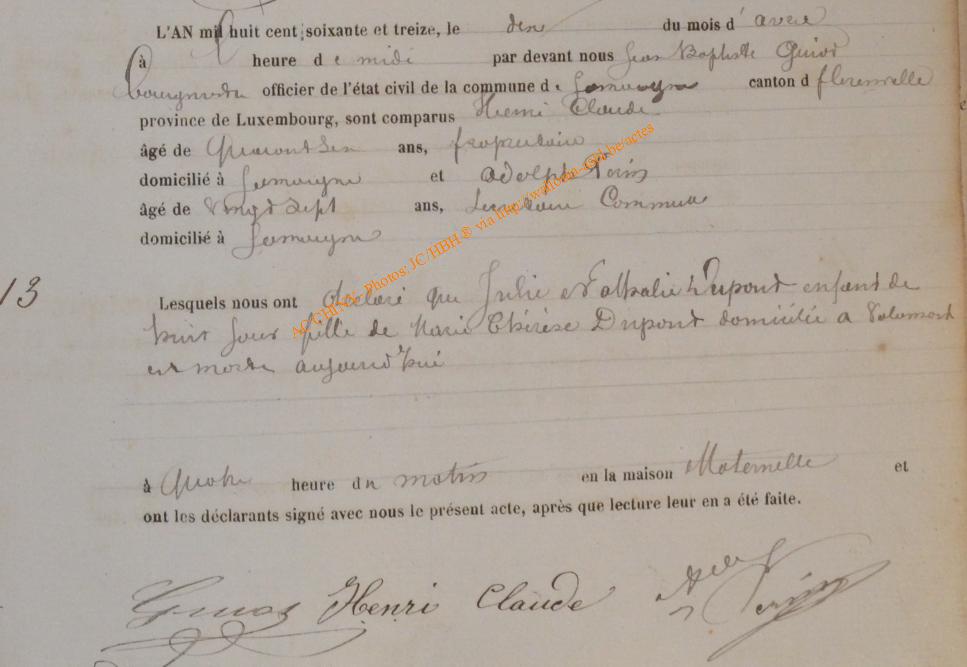 L'AN mil huit cent soixante et treize, le deux du mois d'avril
à heure de midi par devant nous Jean Baptiste Guiot
bourgmestre officier de l'état civil de la commune de Jamoigne canton d florenville
province de Luxembourg, sont comparus Henri Claude
âgé de ans, propriétaire
domicilié à Jamoigne et Adolphe Perin
âgé de Vingt Sept ans, Secrétaire Communal
domicilié à Jamoigne
13
Lesquels nous ont déclaré que Julie Nathalie Dupont enfant de
huit jours fille de Marie Thérèse Dupont domiciliée a Valansart
est morte aujourd'hui
à quatre heure du matin en la maison Maternelle et
ont les déclarants signé avec nous le présent acte, après que lecture leur en a été faite.
Guiot Henri Claude Perin
ACCHINA- Photos: JC/HBH ® via http://wallonia-asbl.be/actes